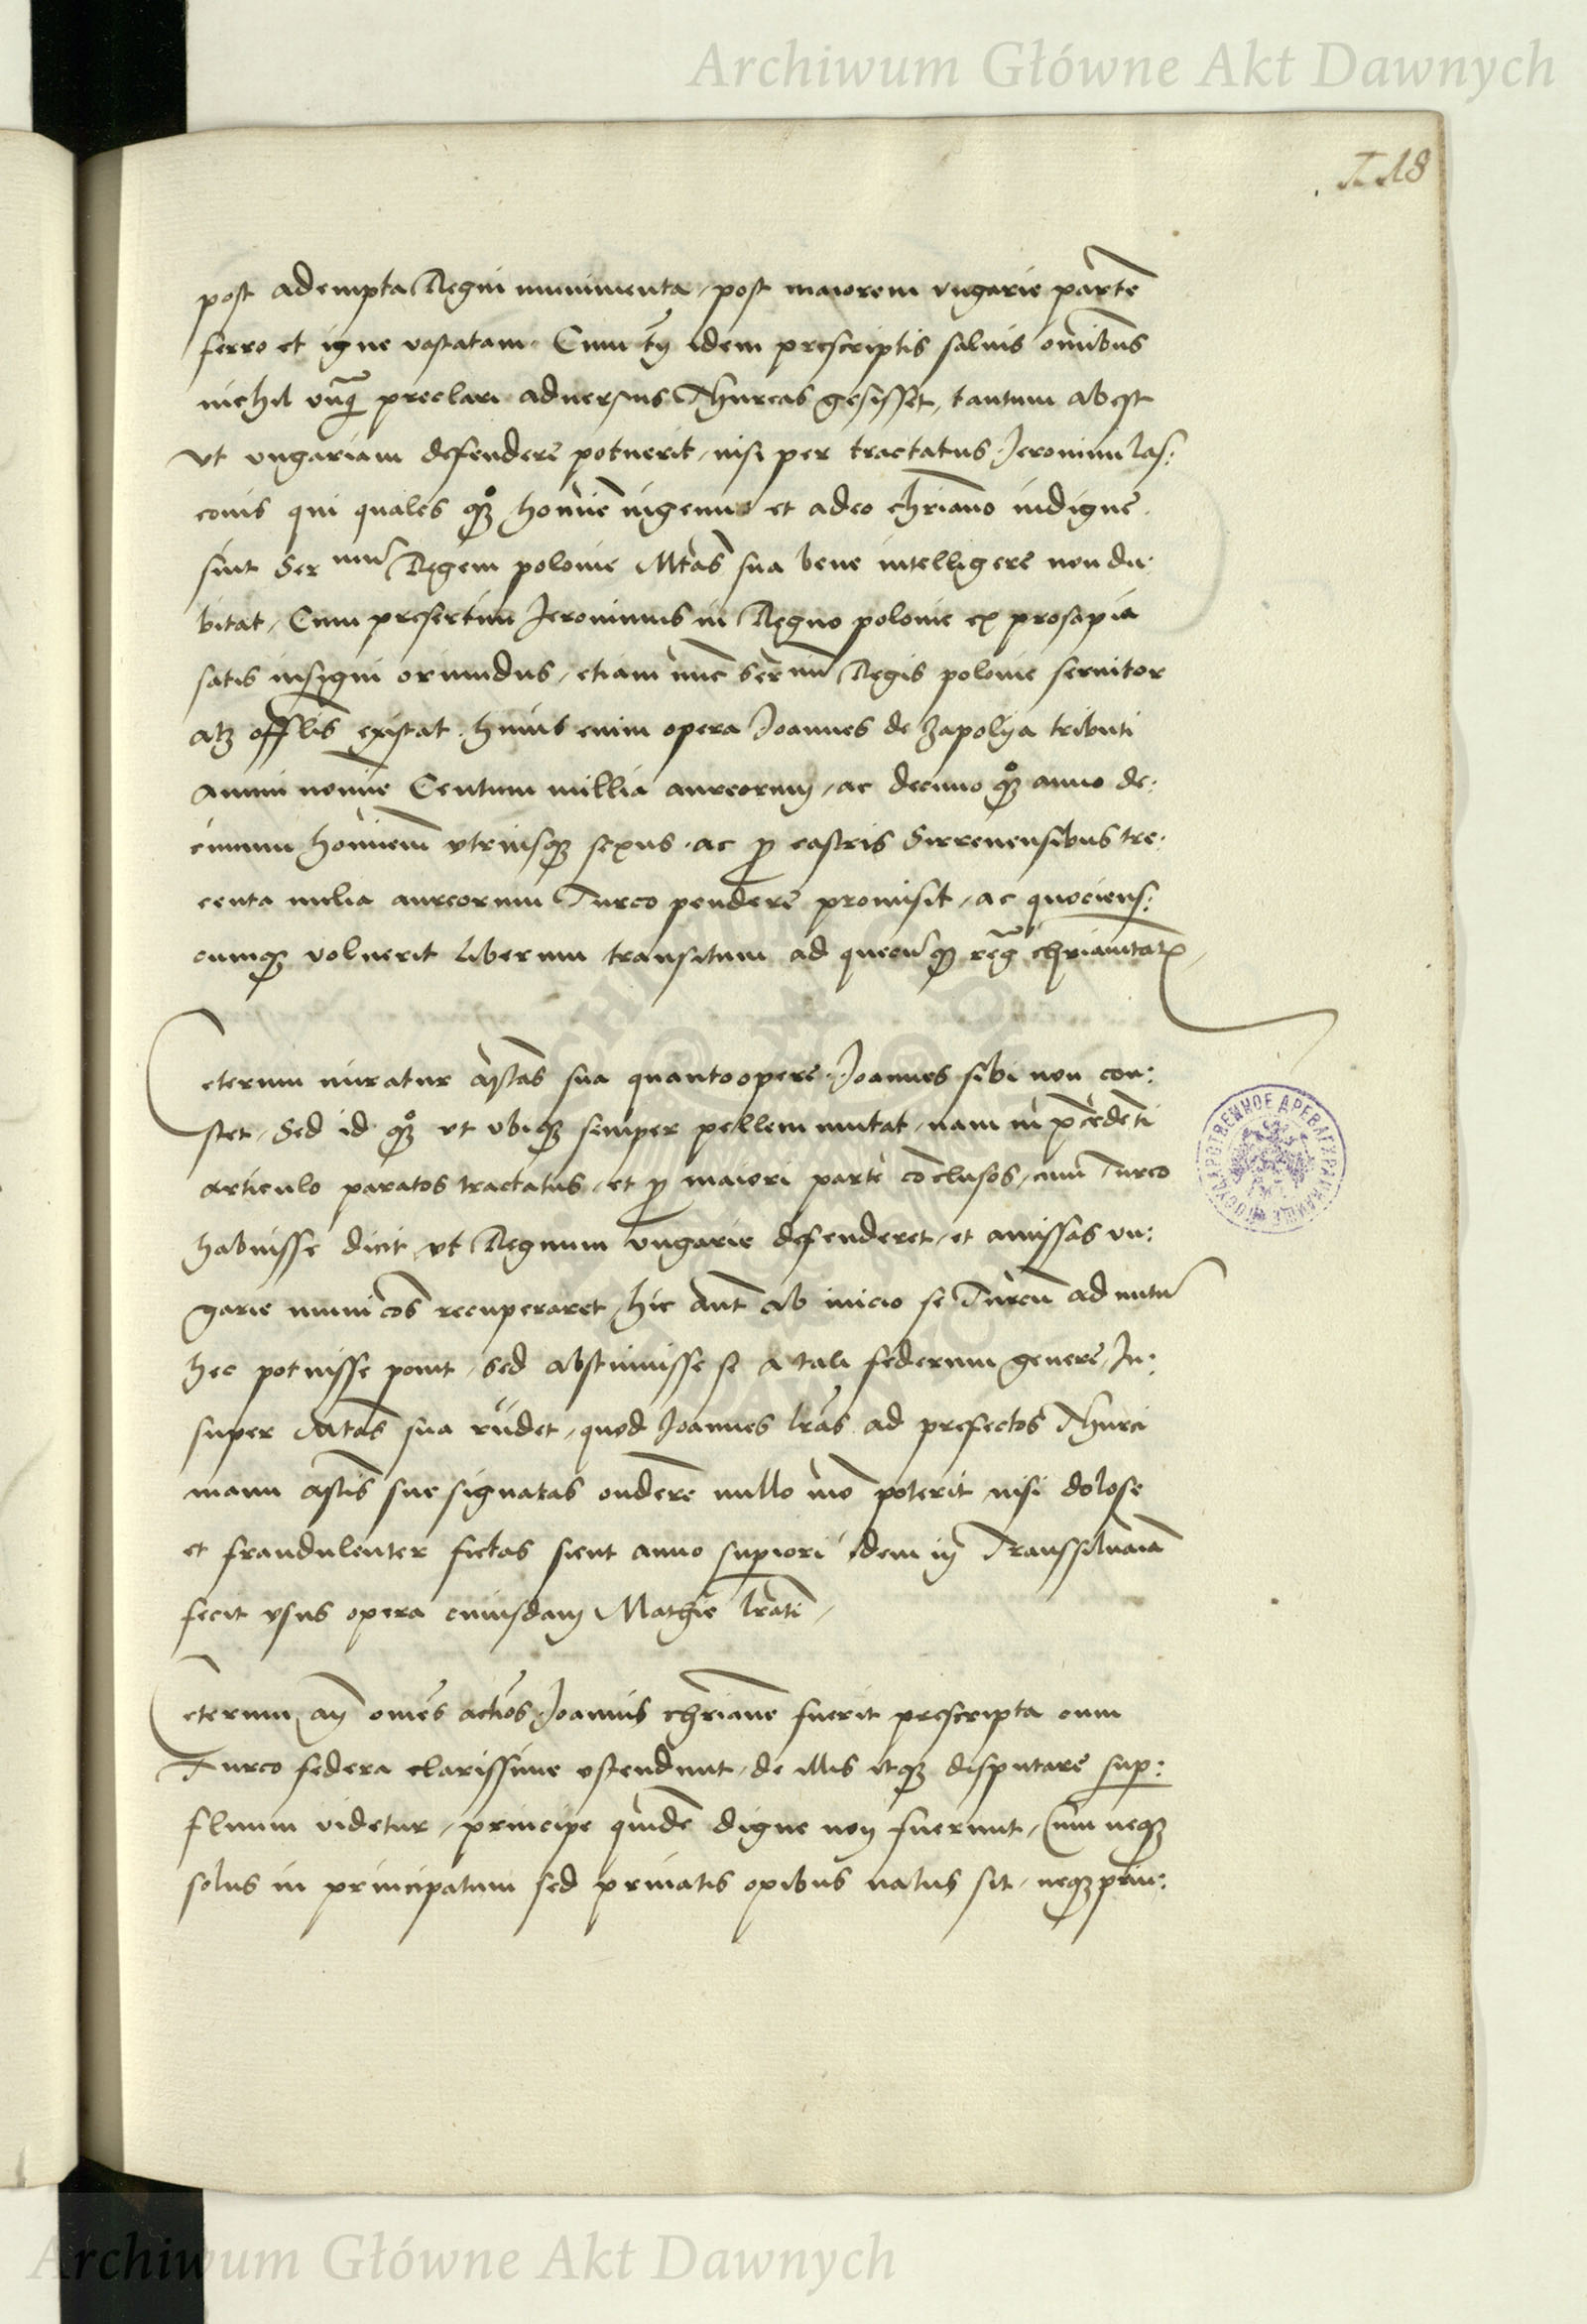 Archiwum Główne Akt Dawnych
118
post adempta Regni munimenta, post maiorem vngarie parte͂
ferro et igne vastatam. Cum tn̄ idem prescriptis saluis om̄ibus
nichil vnq̄ preclari aduersus Thurcas gesisset, tantum abest
vt vngariam defendere potuerit, nisi per tractatus Jeronimi las:
conis qui quales qꝫ homine͂ ingenuo et adeo chr̄iano indigne
sint Ser mū Regem polonie Mtas sua bene intelligere non du:
bitat, Cum presertim Jeronimus in Regno polonie ex prosapia
satis insigni oriundus, etiam nūc Ser mi Regis polonie seruitor
atqꝫ offlis existat. huius enim opera Joannes de Zapolya tributi
annui noīe Centum millia aureorum, ac decimo qꝫ anno de:
cimum hominem vtriusqꝫ sexus. ac ꝓ castris Sirreuensibus tre:
centa milia aureorum Turco pendere promisit, ac quociens:
cumqꝫ voluerit liberum transitum ad quecūqꝫ reḡ chr̄ianitatꝭ,
Ceterum miratur Mtas sua quantoopere Joannes sibi non con:
stet, Sed id qꝫ vt vbiqꝫ semper pellem mutat, nam in p̄cedēti
articulo paratos tractatus, et ꝓ maiori parte cōclusos, cum Turco
habuisse dicit, vt Regnum vngarie defenderet, et amissas vn:
garie municōes recuperaret, hic aut̄ ab inicio se Turcū ad nutū
hec potuisse ponit, Sed abstinuisse se a tali federum genere, In:
super Mtas sua ridet, quod Joannes lr̄as ad prefectos Thurci
manu Mtis sue signatas ondere nullo mō poterit nisi dolose
et fraudulenter fictas sicut anno superiori idem in Transsiluaīa
fecit vsus opera cuiusdam Mathie lr̄ati,
Ceterum an om̄es actiōes Joannis chr̄iane fuerit prescripta cum
Turco federa clarissime ostendunt, de illis itaqꝫ disputare sup:
fluum videtur, principe quidē digne non fuerunt, Cum neqꝫ
solus in principatum sed priuatis opibus natus sit, neqꝫ prin:
Archiwum Główne Akt Dawnych